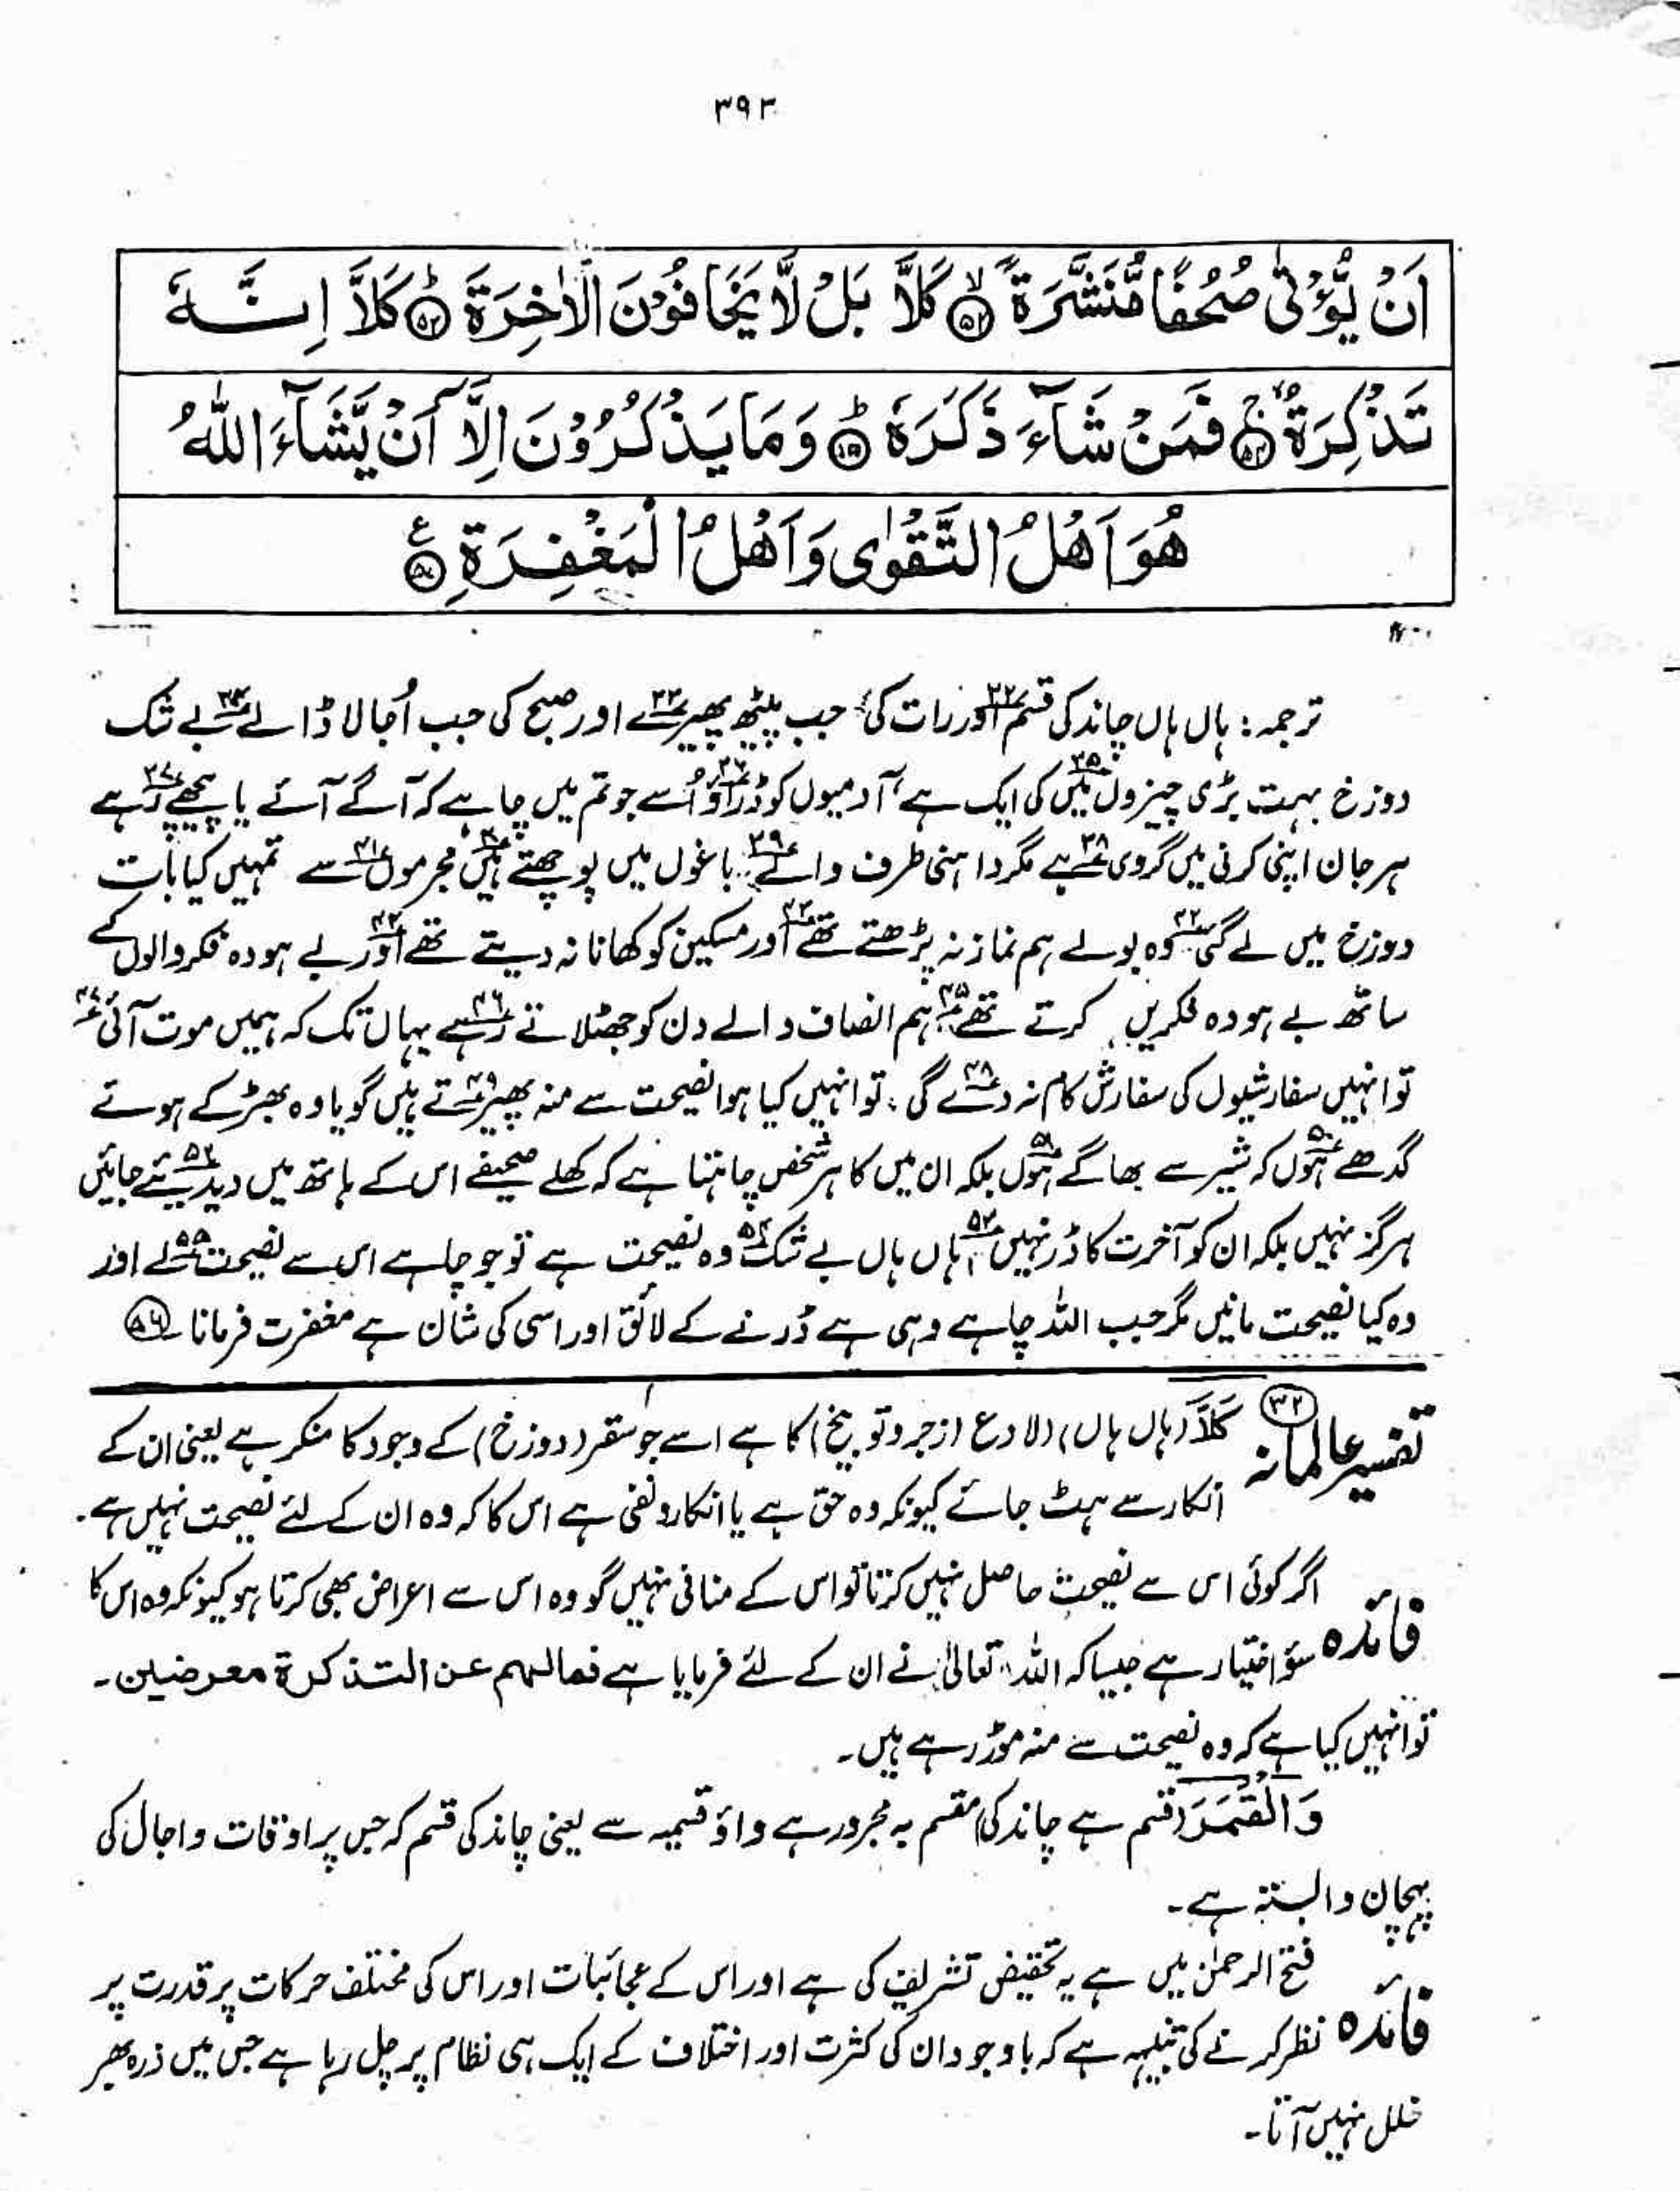 ۳۹۲
اَنْ يُّؤْتٰى صُحُفًا مُّنَشَّرَةً ۙ۵۲ كَلَّا بَلْ لَّا يَخَافُوْنَ الْاٰخِرَةَ ؕ۵۳ كَلَّاۤ اِنَّهٗ
تَذْكِرَةٌ ۚ۵۴ فَمَنْ شَآءَ ذَكَرَهٗ ؕ۵۵ وَمَا يَذْكُرُوْنَ اِلَّاۤ اَنْ يَّشَآءَ اللّٰهُ
هُوَ اَهْلُ التَّقْوٰى وَاَهْلُ الْمَغْفِرَةِ ۵۶ ع
ترجمہ: ہاں ہاں چاند کی قسم ۳۲ اور رات کی جب پیٹھ پھیرے ۳۳ اور صبح کی جب اُجالا ڈالے ۳۴ بے شک
دوزخ بہت بڑی چیزوں میں ۳۵ کی ایک ہے، آدمیوں کو ڈراؤ ۳۶ اُسے جو تم میں چاہے کہ آگے آئے یا پیچھے رہے ۳۷
ہر جان اپنی کرنی میں گروی ہے ۳۸ مگر داہنی طرف والے ۳۹ باغوں میں پوچھتے ہیں ۴۰ مجرموں سے ۴۱ تمہیں کیا بات
دوزخ میں لے گئی ۴۲ وہ بولے ہم نماز نہ پڑھتے تھے ۴۳ اور مسکین کو کھانا نہ دیتے تھے ۴۴ اور بے ہودہ فکر والوں کے
ساتھ بے ہودہ فکریں کرتے تھے ۴۵ ہم انصاف والے دن کو جھٹلاتے رہے ۴۶ یہاں تک کہ ہمیں موت آئی ۴۷
تو انہیں سفارشیوں کی سفارش کام نہ دے گی ۴۸، تو انہیں کیا ہوا نصیحت سے منہ پھیرتے ۴۹ ہیں گویا وہ بھڑکے ہوتے
گدھے ہوں ۵۰ کہ شیر سے بھاگے ہوں ۵۱ بلکہ ان میں کا ہر شخص چاہتا ہے کہ کھلے صحیفے اس کے ہاتھ میں دیدیئے جائیں ۵۲
ہرگز نہیں بلکہ ان کو آخرت کا ڈر نہیں ۵۳ ہاں ہاں بے شک ۵۴ وہ نصیحت ہے تو جو چاہے اس سے نصیحت لے ۵۵ اور
وہ کیا نصیحت مانیں مگر جب اللہ چاہے وہی ہے ڈرنے کے لائق اور اسی کی شان ہے مغفرت فرمانا ۵۶
تفسیر عالمانہ ۳۲ كَلَّا (ہاں ہاں) (لا ردع (زجر و توبیخ) کا ہے اسے جو سقر (دوزخ) کے وجود کا منکر ہے یعنی ان کے
انکار سے ہٹ جائے کیونکہ وہ حق ہے یا انکار و نفی ہے اس کا کہ وہ ان کے لئے نصیحت نہیں ہے۔
فائدہ اگر کوئی اس سے نصیحت حاصل نہیں کرتا تو اس کے منافی نہیں گو وہ اس سے اعراض بھی کرتا ہو کیونکہ وہ اس کا
سوٴ اختیار ہے جیسا کہ اللہ تعالیٰ نے ان کے لئے فرمایا ہے فمالہم عن التذکرة معرضین۔
تو انہیں کیا ہے کہ وہ نصیحت سے منہ موڑ رہے ہیں۔
وَالْقَمَرَ (قسم ہے چاند کی) مقسم بہ مجرور ہے واؤ قسمیہ سے یعنی چاند کی قسم کہ جس پر اوقات و اجال کی
پہچان وابستہ ہے۔
فائدہ فتح الرحمٰن میں ہے یہ تحقیض تشریف کی ہے اور اس کے عجائبات اور اس کی مختلف حرکات پر قدرت پر
نظر کرنے کی تنبیہہ ہے کہ باوجود ان کی کثرت اور اختلاف کے ایک ہی نظام پر چل رہا ہے جس میں ذرہ بھر
خلل نہیں آتا۔